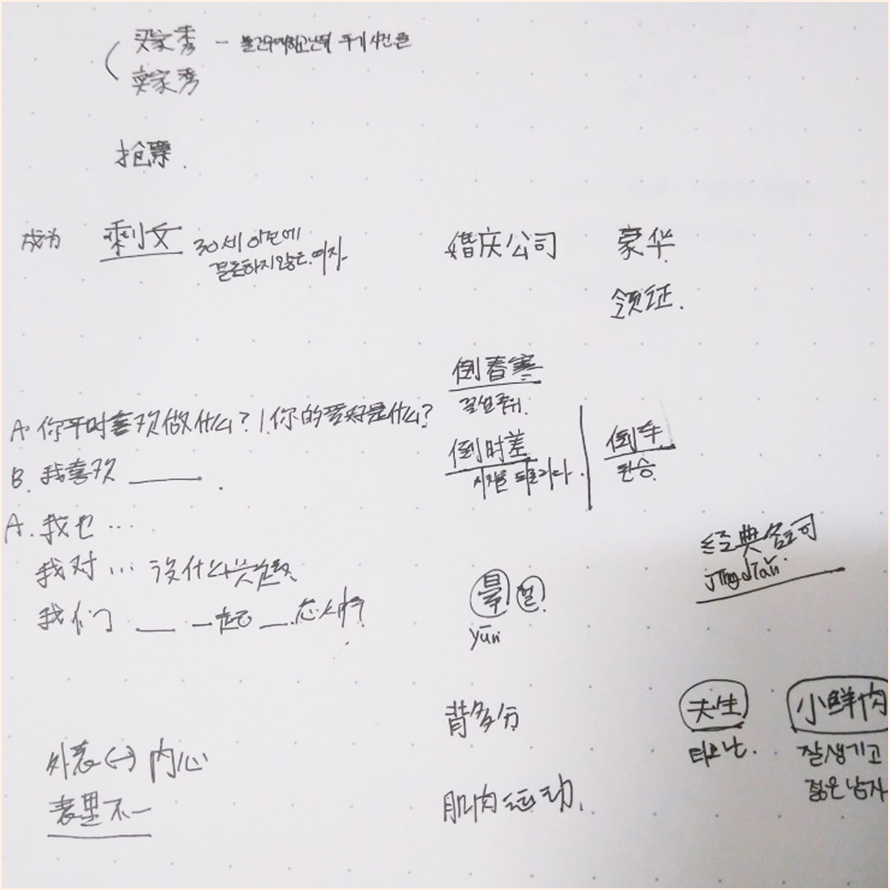 买家秀 -
卖家秀
抢票.
成为 剩女 30세 이전에
결혼하지 않은 여자.
婚庆公司 豪华
领证.
倒春寒
꽃샘추위.
A. 你平时喜欢做什么? / 你的爱好是什么?
B. 我喜欢 ____.
倒时差
倒手
A. 我也...
我对... 没什么兴趣
我们 __ 一起 __ 怎么样?
经典台词
jīngdiǎn
晕
yūn
背多分
肌肉运动.
天生
타고난.
小鲜肉
잘생기고
젊은 남자
外表 ↔ 内心
表里不一